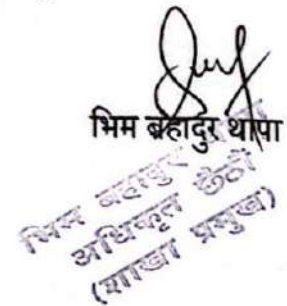 भिम बहादुर थापा
भिम बहादुर थापा
अधिकृत छैठौं
(शाखा प्रमुख)